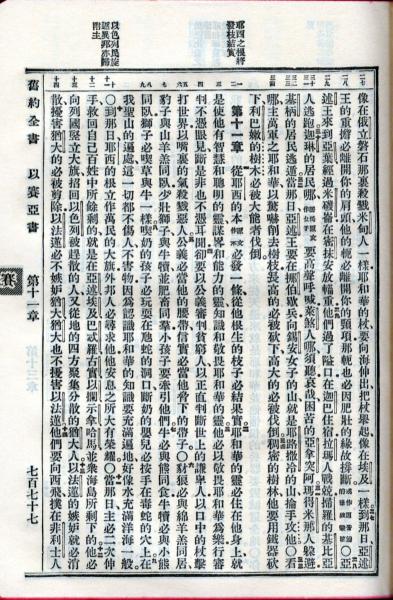 像在俄立磐石那裏殺戮米甸人一樣耶和華的杖要向海伸出把杖舉起像在埃及一樣到那日亞述
王的重擔必離開你的肩頭他的軛必離開你的頸項那軛也必因肥壯的緣故撐斷〇亞
述王來到亞葉經過米磯崙在密抹安放輜重他們過了隘口在迦巴住宿拉瑪人戰兢掃羅的基比亞
人逃跑迦琳的居民哪要高聲呼喊萊煞哪須聽哀哉困苦的亞拿突阿瑪得米那人躲避
基柄的居民逃遁當那日亞述王要在挪伯歇兵向錫安女子的山就是耶路撒冷的山掄手攻他〇看
哪主萬軍之耶和華以驚嚇削去樹枝長高的必被砍下高大的必被伐倒稠密的樹林他要用鐵器砍
下利巴嫩的樹木必被大能者伐倒
第十一章 從耶西的本必發一條從他根生的枝子必結果實耶和華的靈必住在他身上就
是使他有智慧和聰明的靈謀略和能力的靈知識和敬畏耶和華的靈他必以敬畏耶和華為樂行審
判不憑眼見斷是非也不憑耳聞卻要以公義審判貧窮人以正直判斷世上的謙卑人以口中的杖擊
打世界以嘴裏的氣殺戮惡人公義必當他的腰帶信實必當他脅下的帶子〇豺狼必與綿羊羔同居
豹子與山羊羔同臥少壯獅子與牛犢並肥畜同羣小孩子要牽引他們牛必與熊同食牛犢必與小熊
同臥獅子必喫草與牛一樣喫奶的孩子必玩耍在虺蛇的洞口斷奶的嬰兒必按手在毒蛇的穴上在
我聖山的遍處這一切都不傷人不害物因為認識耶和華的知識要充滿遍地好像水充滿洋海一般
〇到那日耶西的根立作萬民的大旗外邦人必尋求他他安息之所大有榮耀〇當那日主必二次伸
手救回自己百姓中所餘剩的就是在亞述埃及巴忒羅古實以攔示拿哈馬並衆海島所剩下的他必
向列國豎立大旗招回以色列被趕散的人又從地的四方聚集分散的猶大人以法蓮的嫉妒就必消
散擾害猶大的必被剪除以法蓮必不嫉妒猶大猶大也不擾害以法蓮他們要向西飛撲在非利士人
耶西之根將
發枝結實
舊約全書 以賽亞書 第十一章 七百七十七
賽